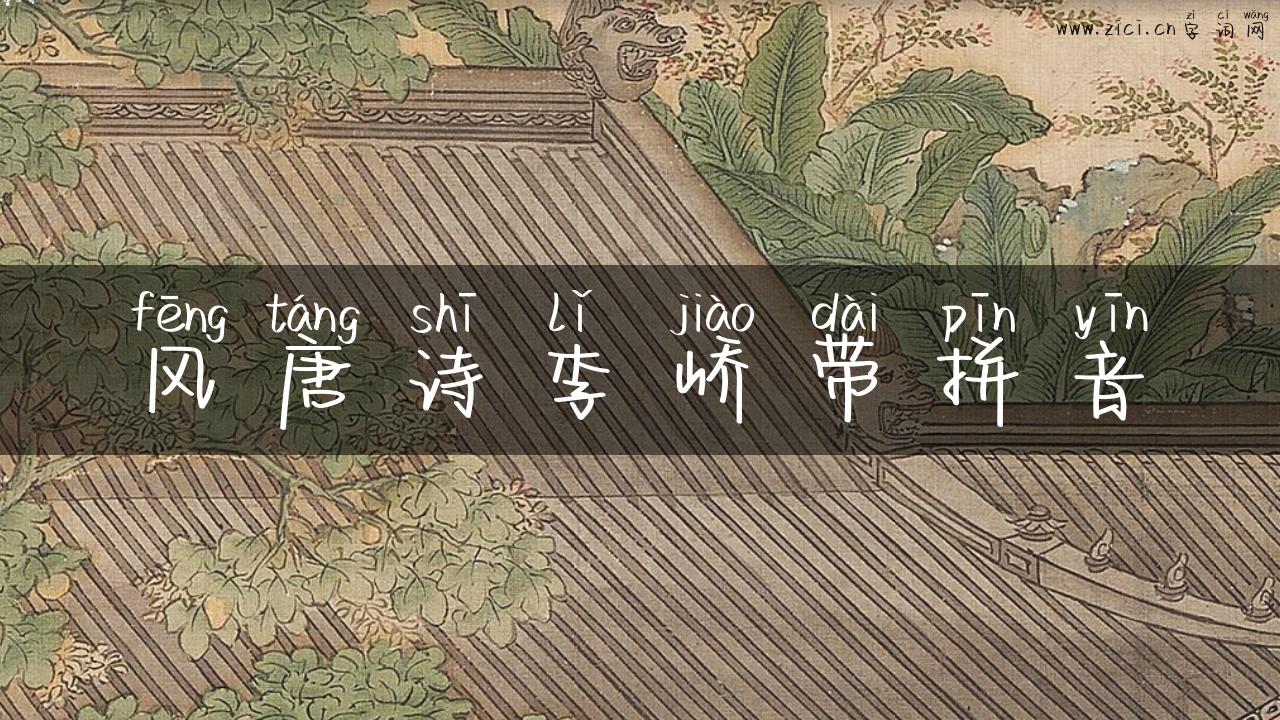 zì cí wǎng
www.zici.cn 字词网
fēng táng shī lǐ jiào dài pīn yīn
风唐诗李峤带拼音